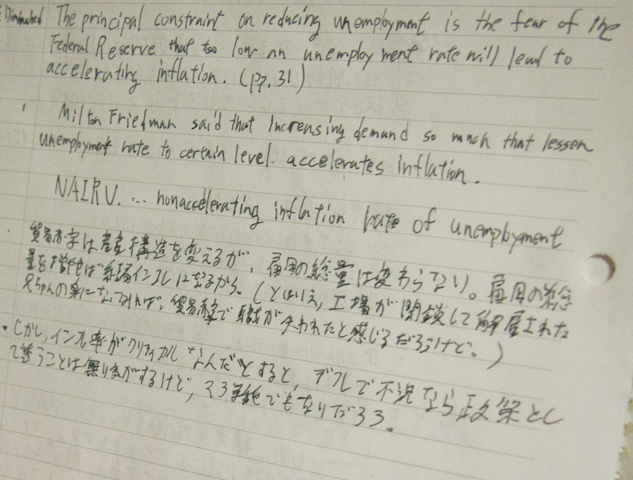 Diminished The principal constraint on reducing unemployment is the fear of the
Federal Reserve that too low an unemployment rate will lead to
accelerating inflation. (pp. 31)
Milton Friedman said that Increasing demand so much that lessen
unemployment rate to certain level. accelerates inflation.
NAIRU. ... nonaccelerating inflation rate of unemployment
貿易赤字は産業構造を変えるが、雇用の総量は変わらない。雇用の総
量を増やせば結局インフレになるから。(とはいえ、工場が閉鎖して解雇された
兄ちゃんの身になってみれば、貿易赤字で職が失われたと感じるだろうけど。)
・しかし、インフレ率がクリティカル なんだとすると、デフレで不況なら政策とし
て違うことは無り 気がするけど、そう単純でもないだろう。